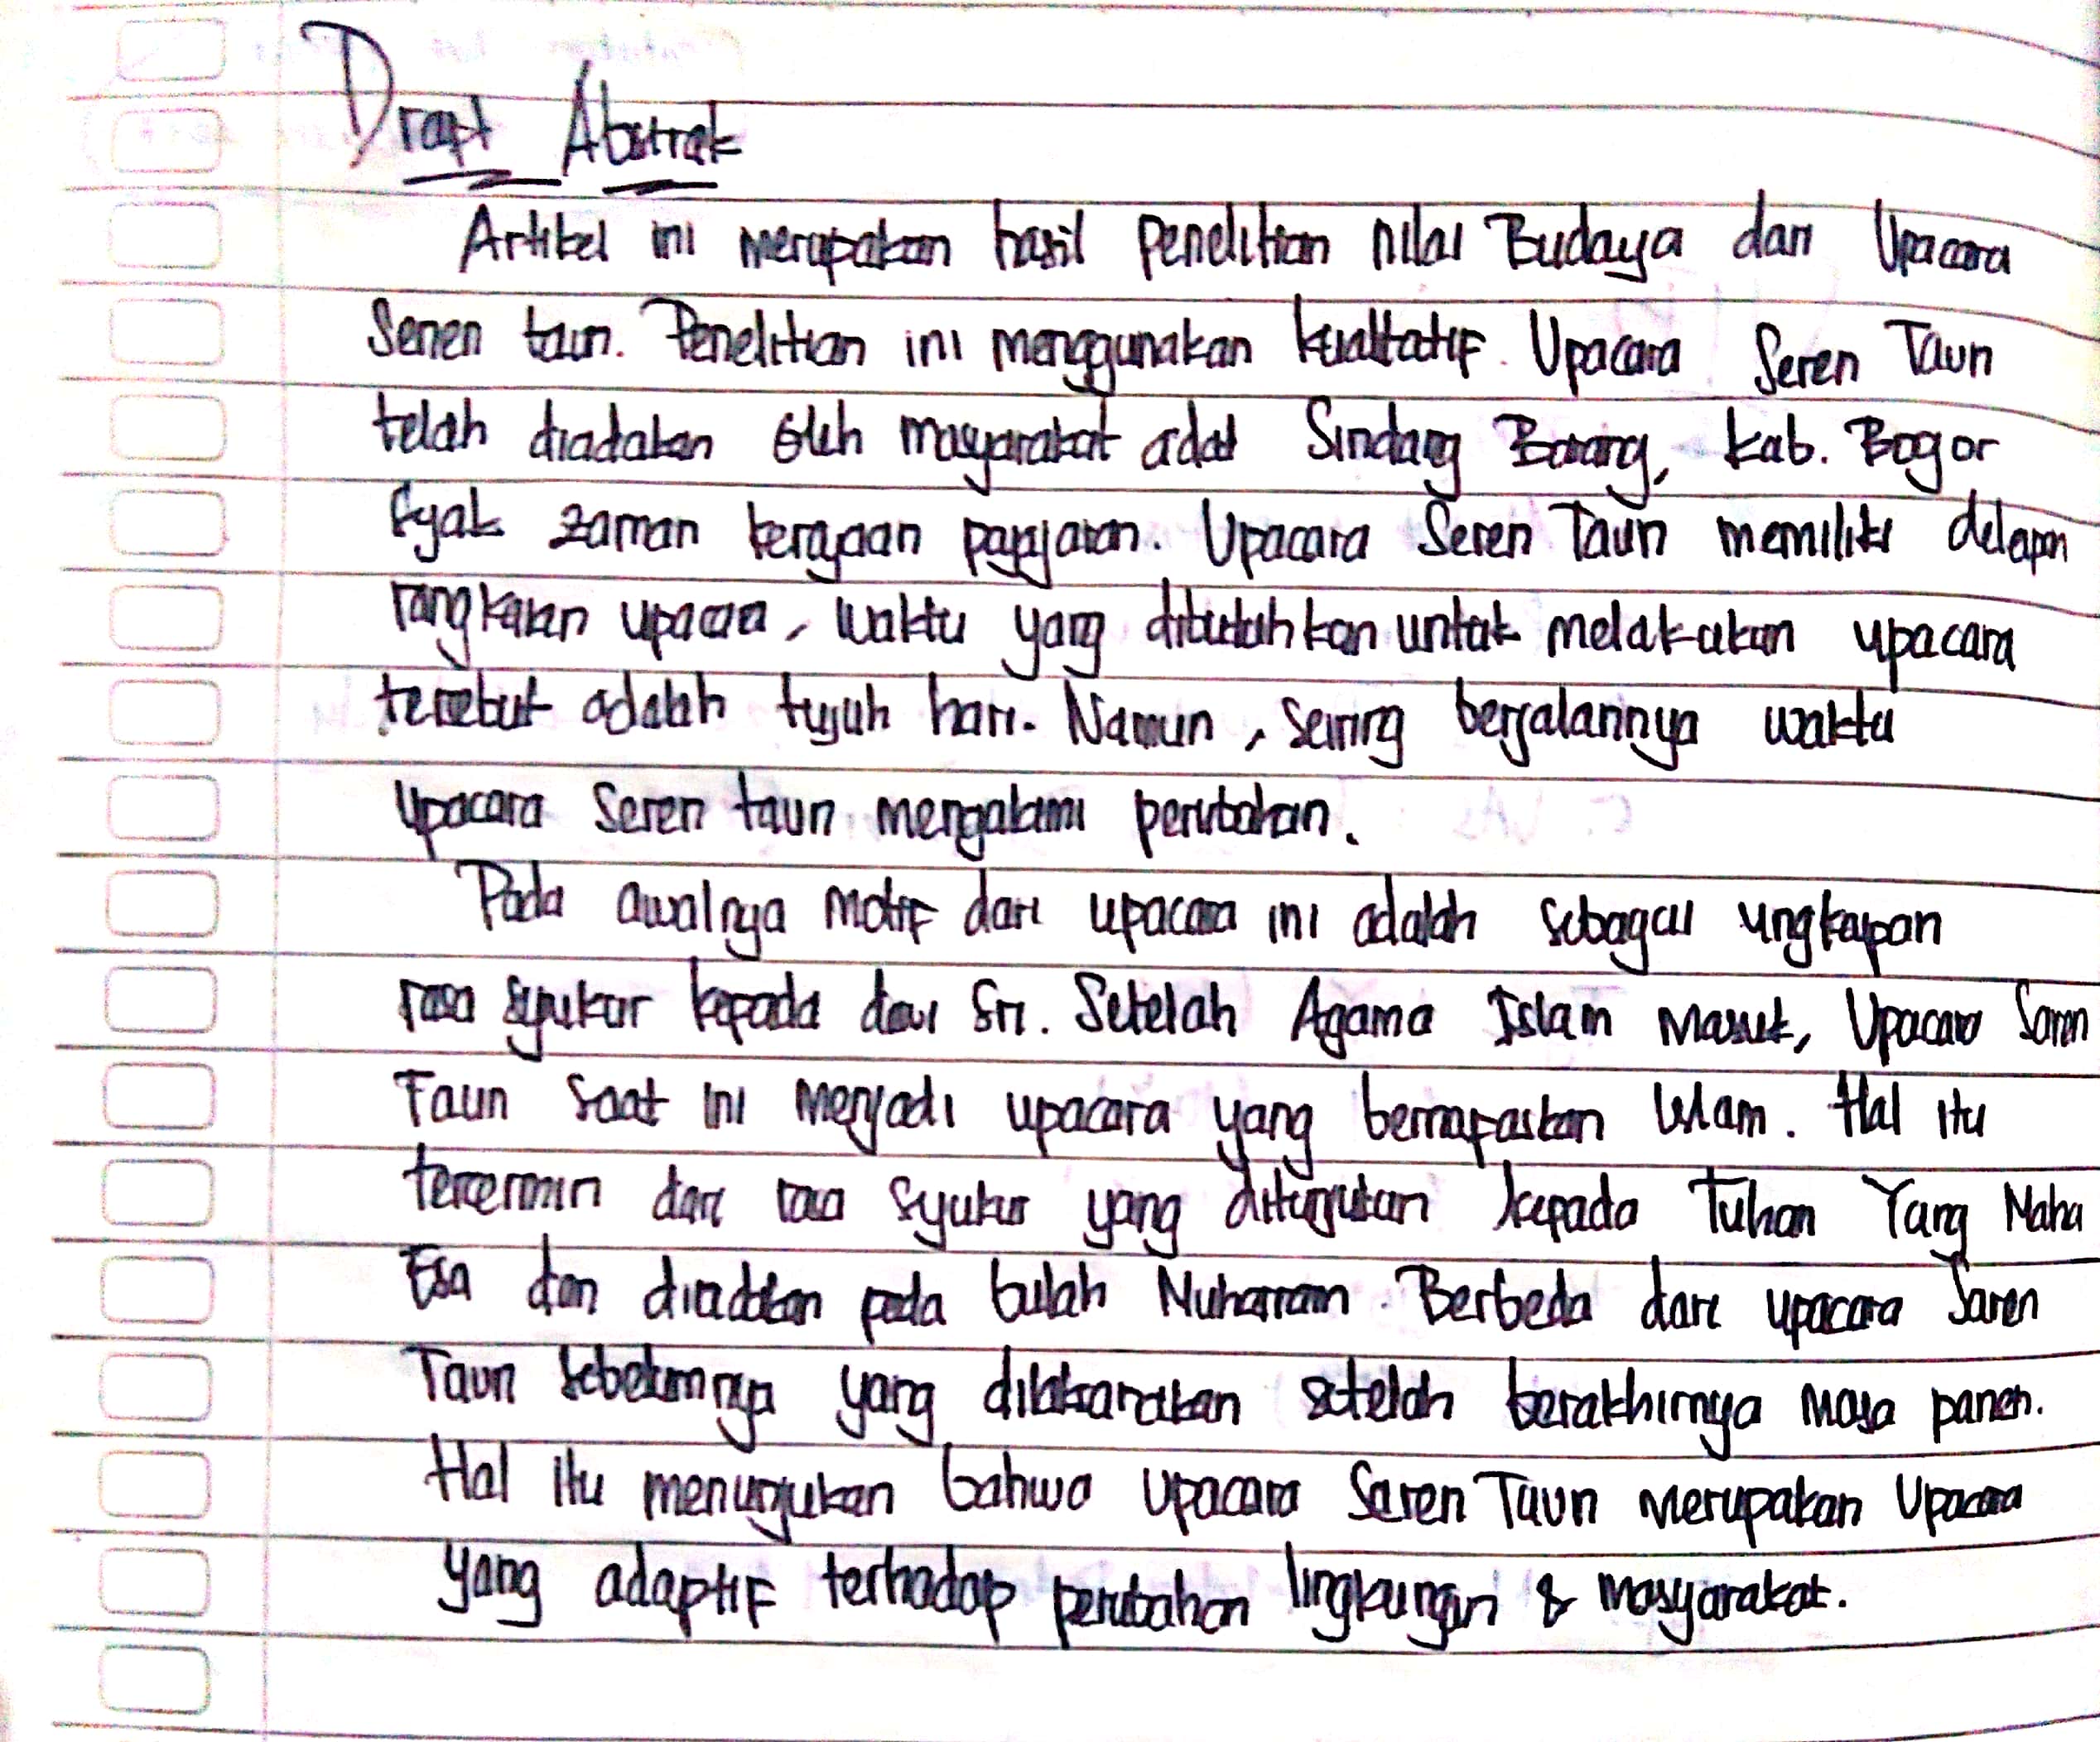 Draft Abstrak
Artikel ini merupakan hasil Penelitian nilai Budaya dari Upacara
Seren taun. Penelitian ini menggunakan kualitatif. Upacara Seren Taun
telah diadakan oleh masyarakat adat Sindang Barang, Kab. Bogor
sejak zaman kerajaan pajajaran. Upacara Seren Taun memiliki delapan
rangkaian upacara, waktu yang dibutuhkan untuk melakukan upacara
tersebut adalah tujuh hari. Namun, seiring berjalannya waktu
upacara Seren taun mengalami perubahan.
Pada awalnya motif dari upacara ini adalah sebagai ungkapan
rasa syukur kepada dewi Sri. Setelah Agama Islam Masuk, Upacara Saren
Taun saat ini menjadi upacara yang bernafaskan Islam. Hal itu
tercermin dari rasa syukur yang ditunjukan kepada Tuhan Yang Maha
Esa dan diadakan pada bulah Muharram. Berbeda dari upacara Saren
Taun sebelumnya yang dilaksanakan setelah berakhirnya masa panen.
Hal itu menunjukan bahwa Upacara Saren Taun merupakan Upacara
yang adaptif terhadap perubahan lingkungan & masyarakat.